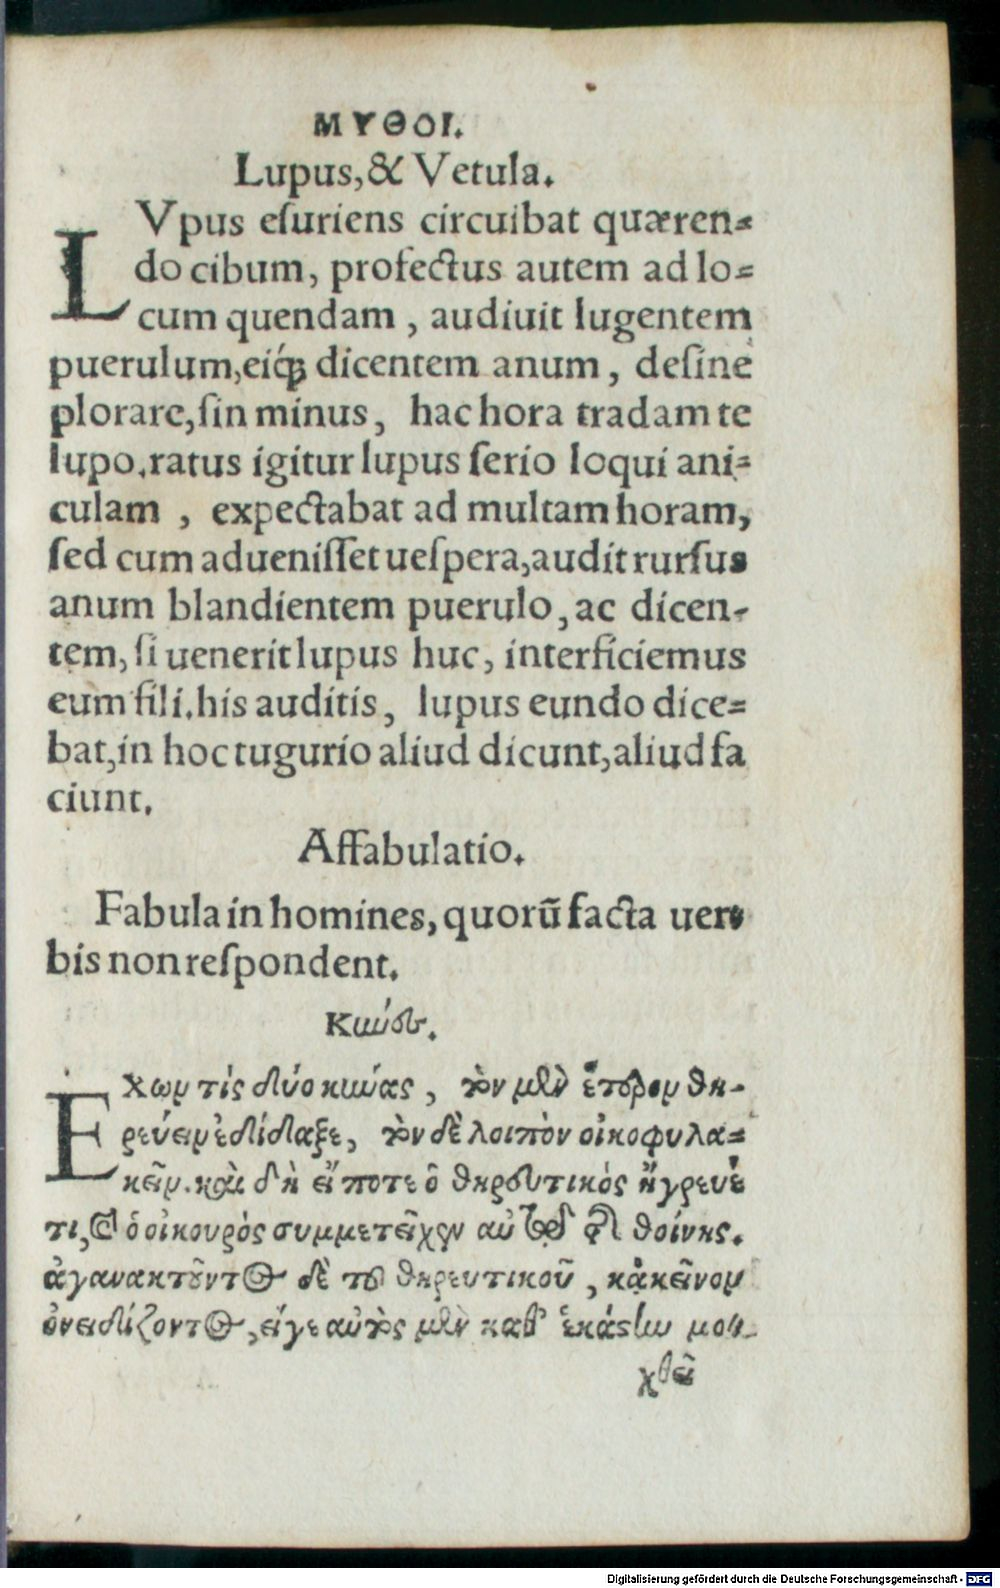 ΜΥΘΟΙ.
Lupus, & Vetula.
LVpus eſuriens circuibat quæren=
do cibum, profectus autem ad lo=
cum quendam, audiuit lugentem
puerulum, eiq́ꝫ dicentem anum, deſine
plorare, ſin minus, hac hora tradam te
lupo. ratus igitur lupus ſerio loqui ani=
culam, expectabat ad multam horam,
ſed cum adueniſſet ueſpera, audit rurſus
anum blandientem puerulo, ac dicen-
tem, ſi uenerit lupus huc, interficiemus
eum fili. his auditis, lupus eundo dice=
bat, in hoc tugurio aliud dicunt, aliud fa
ciunt.
Affabulatio.
Fabula in homines, quorū facta uer
bis non reſpondent.
Κύων.
Εχων τίς δύο κύνας, τὸν μὲν ἕτερον θη-
ρεύειν ἐδίδαξε, τὸν δὲ λοιπὸν οἰκοφυλα=
κεῖν. καὶ δὴ εἴποτε ὁ θηρευτικὸς ἤγρευέ
τι, καὶ ὁ οἰκουρὸς συμμετεῖχεν αὐτῷ τῆς θοίνης.
ἀγανακτοῦντος δὲ τοῦ θηρευτικοῦ, κἀκεῖνον
ὀνειδίζοντος, εἴγε αὐτὸς μὲν καθ' ἑκάστην μο-
χθεῖ
Digitalisierung gefördert durch die Deutsche Forschungsgemeinschaft - DFG